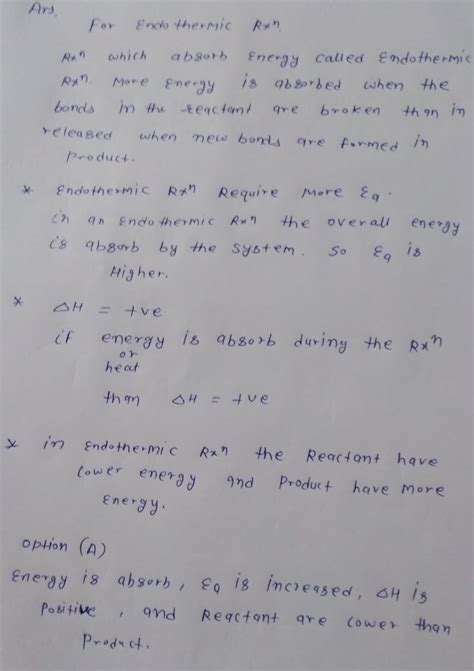 Ans.
For Endothermic Rxⁿ
Rxⁿ which absorb energy called Endothermic
Rxⁿ. More Energy is absorbed when the
bonds in the reactant are broken than in
released when new bonds are formed in
Product.
* Endothermic Rxⁿ Require More Eq.
in an Endothermic Rxⁿ the overall energy
is absorb by the system. So Eq is
Higher.
* ΔH = +ve
if energy is absorb during the Rxⁿ
or
heat
than ΔH = +ve
* in Endothermic Rxⁿ the Reactant have
lower energy and Product have more
Energy.
option (A)
Energy is absorb, Eq is increased, ΔH is
Positive, and Reactant are lower than
Product.